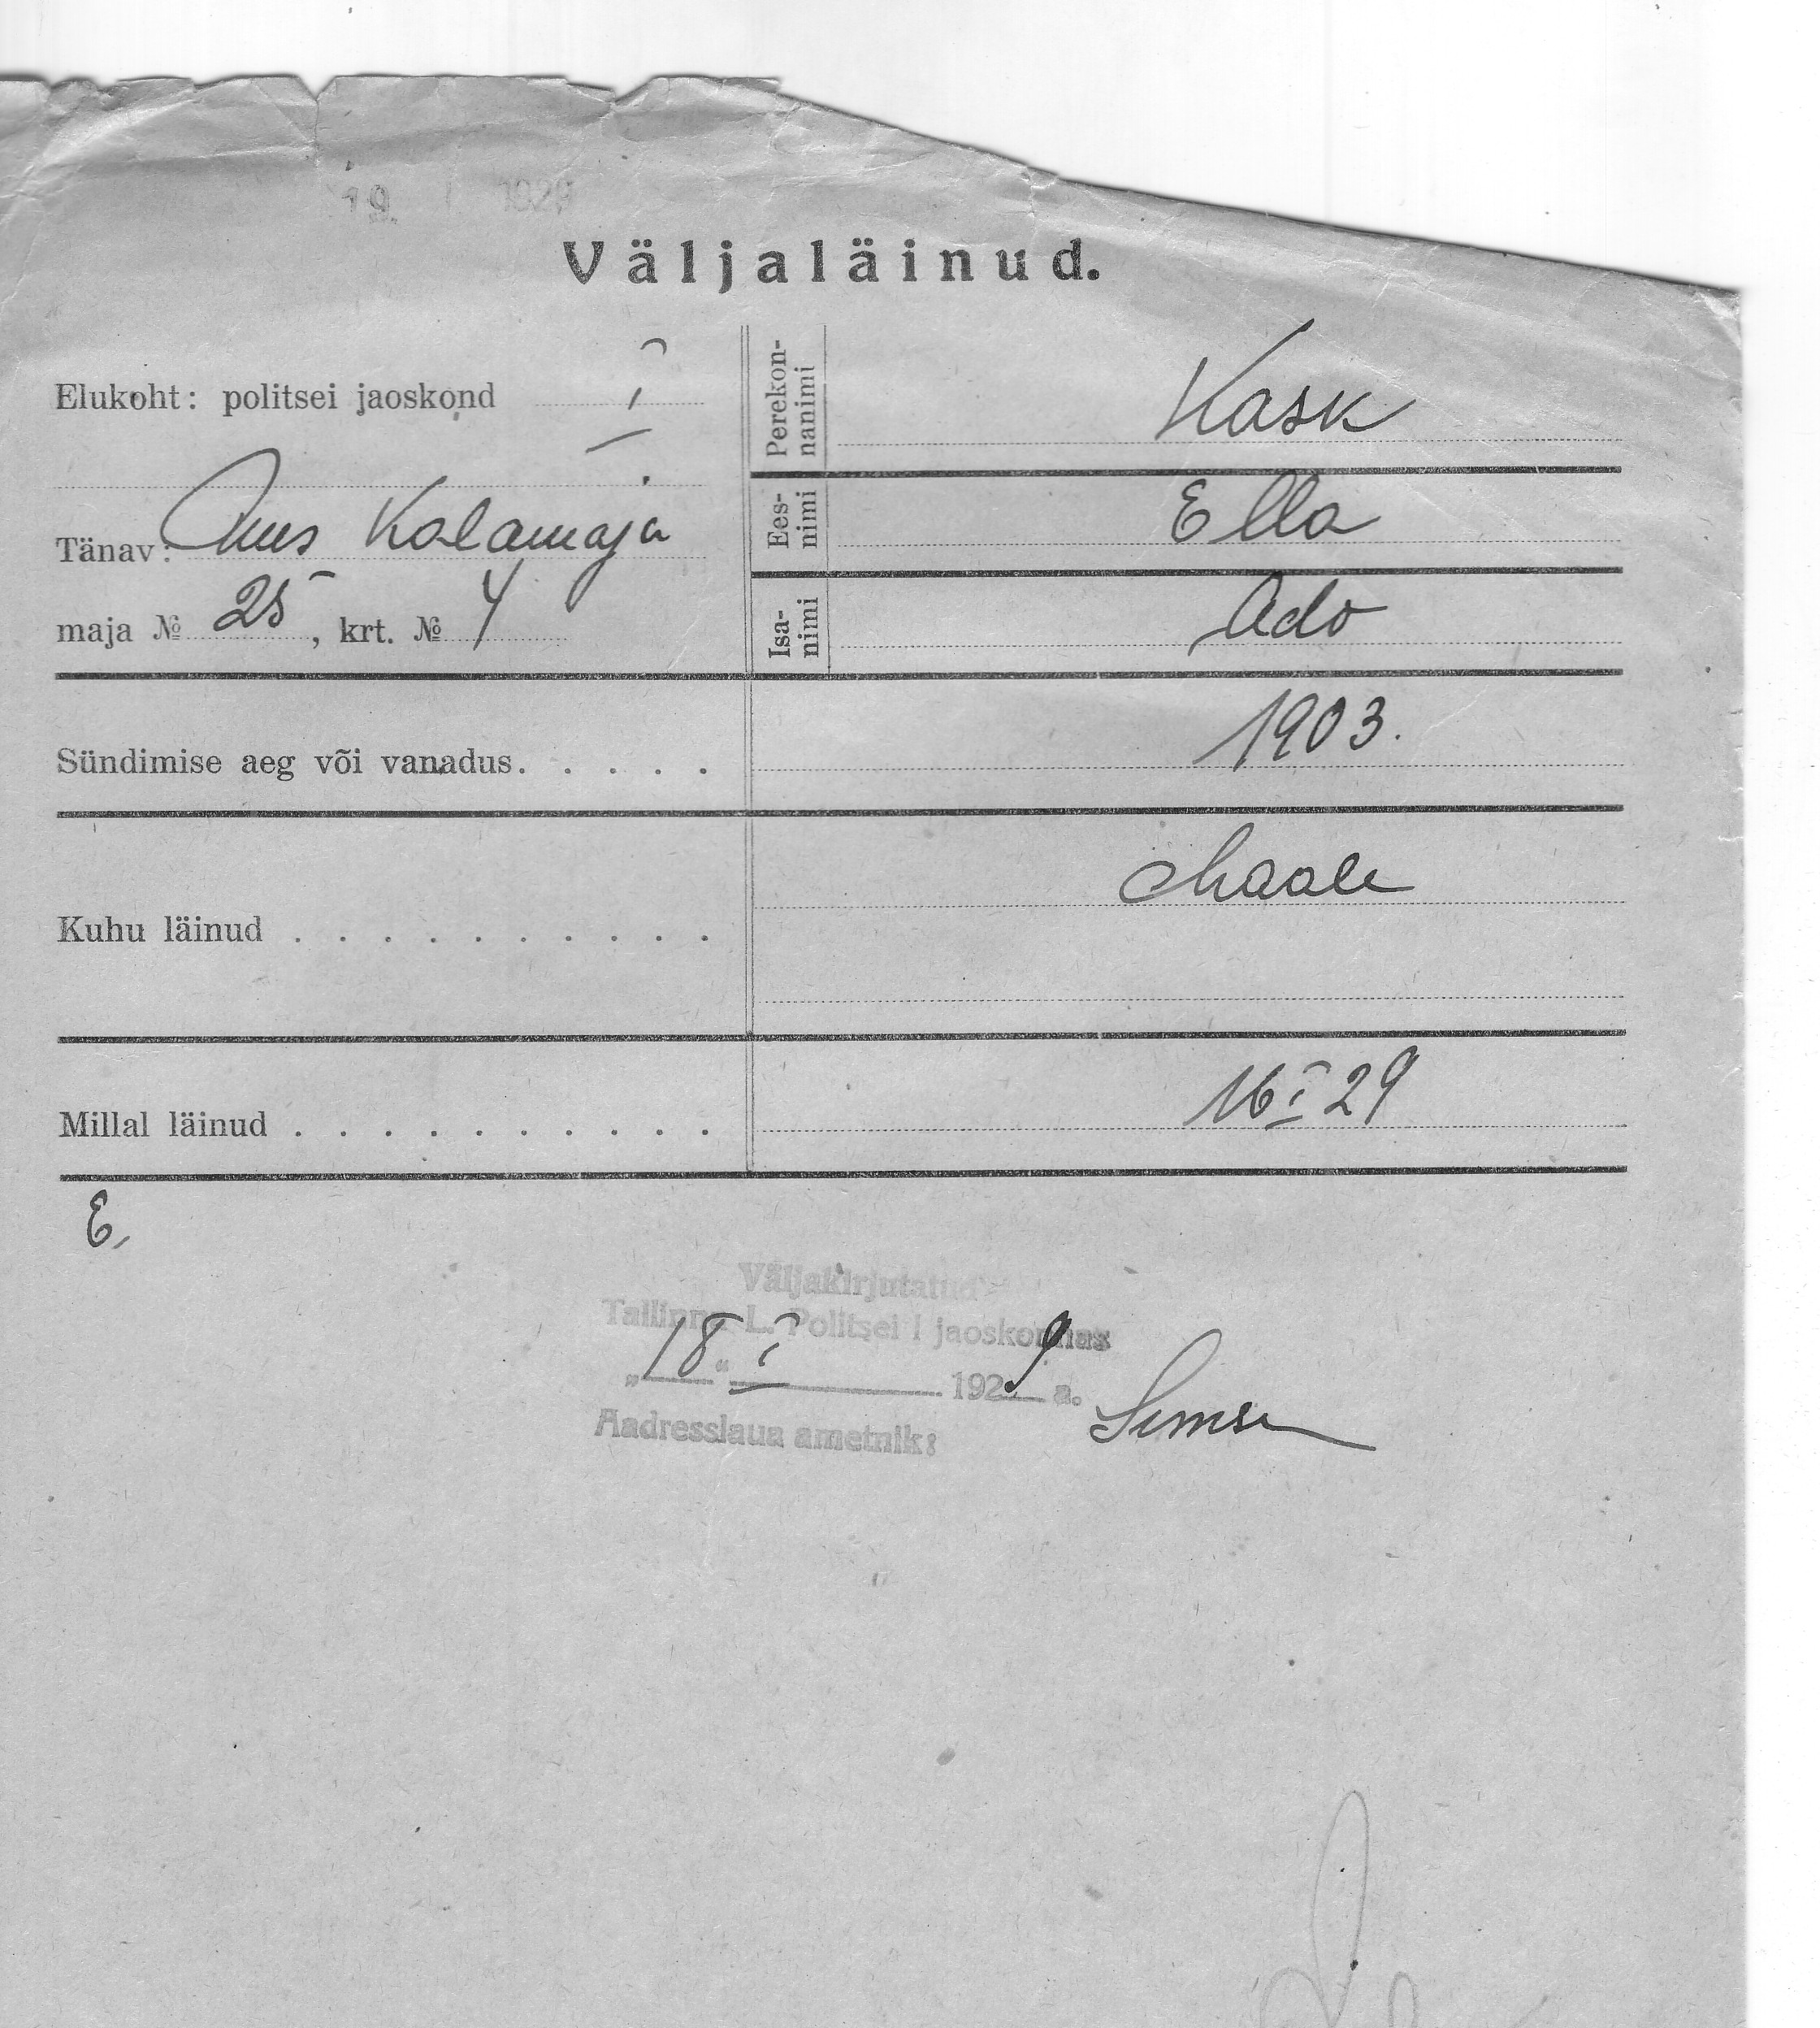 19. I 1929
Väljaläinud.
Elukoht: politsei jaoskond I
Tänav: Uus Kalamaja
maja № 25, krt. № 4
Perekon-
nanimi
Kask
Ees-
nimi
Ella
Isa-
nimi
Ado
Sündimise aeg või vanadus. . . . . 1903.
Kuhu läinud . . . . . . . . . . Maale
Millal läinud . . . . . . . . . . 16 I 29
E.
Väljakirjutatud
Tallinna L. Politsei I jaoskonnas
„18" I 1929 a.
Aadresslaua ametnik: